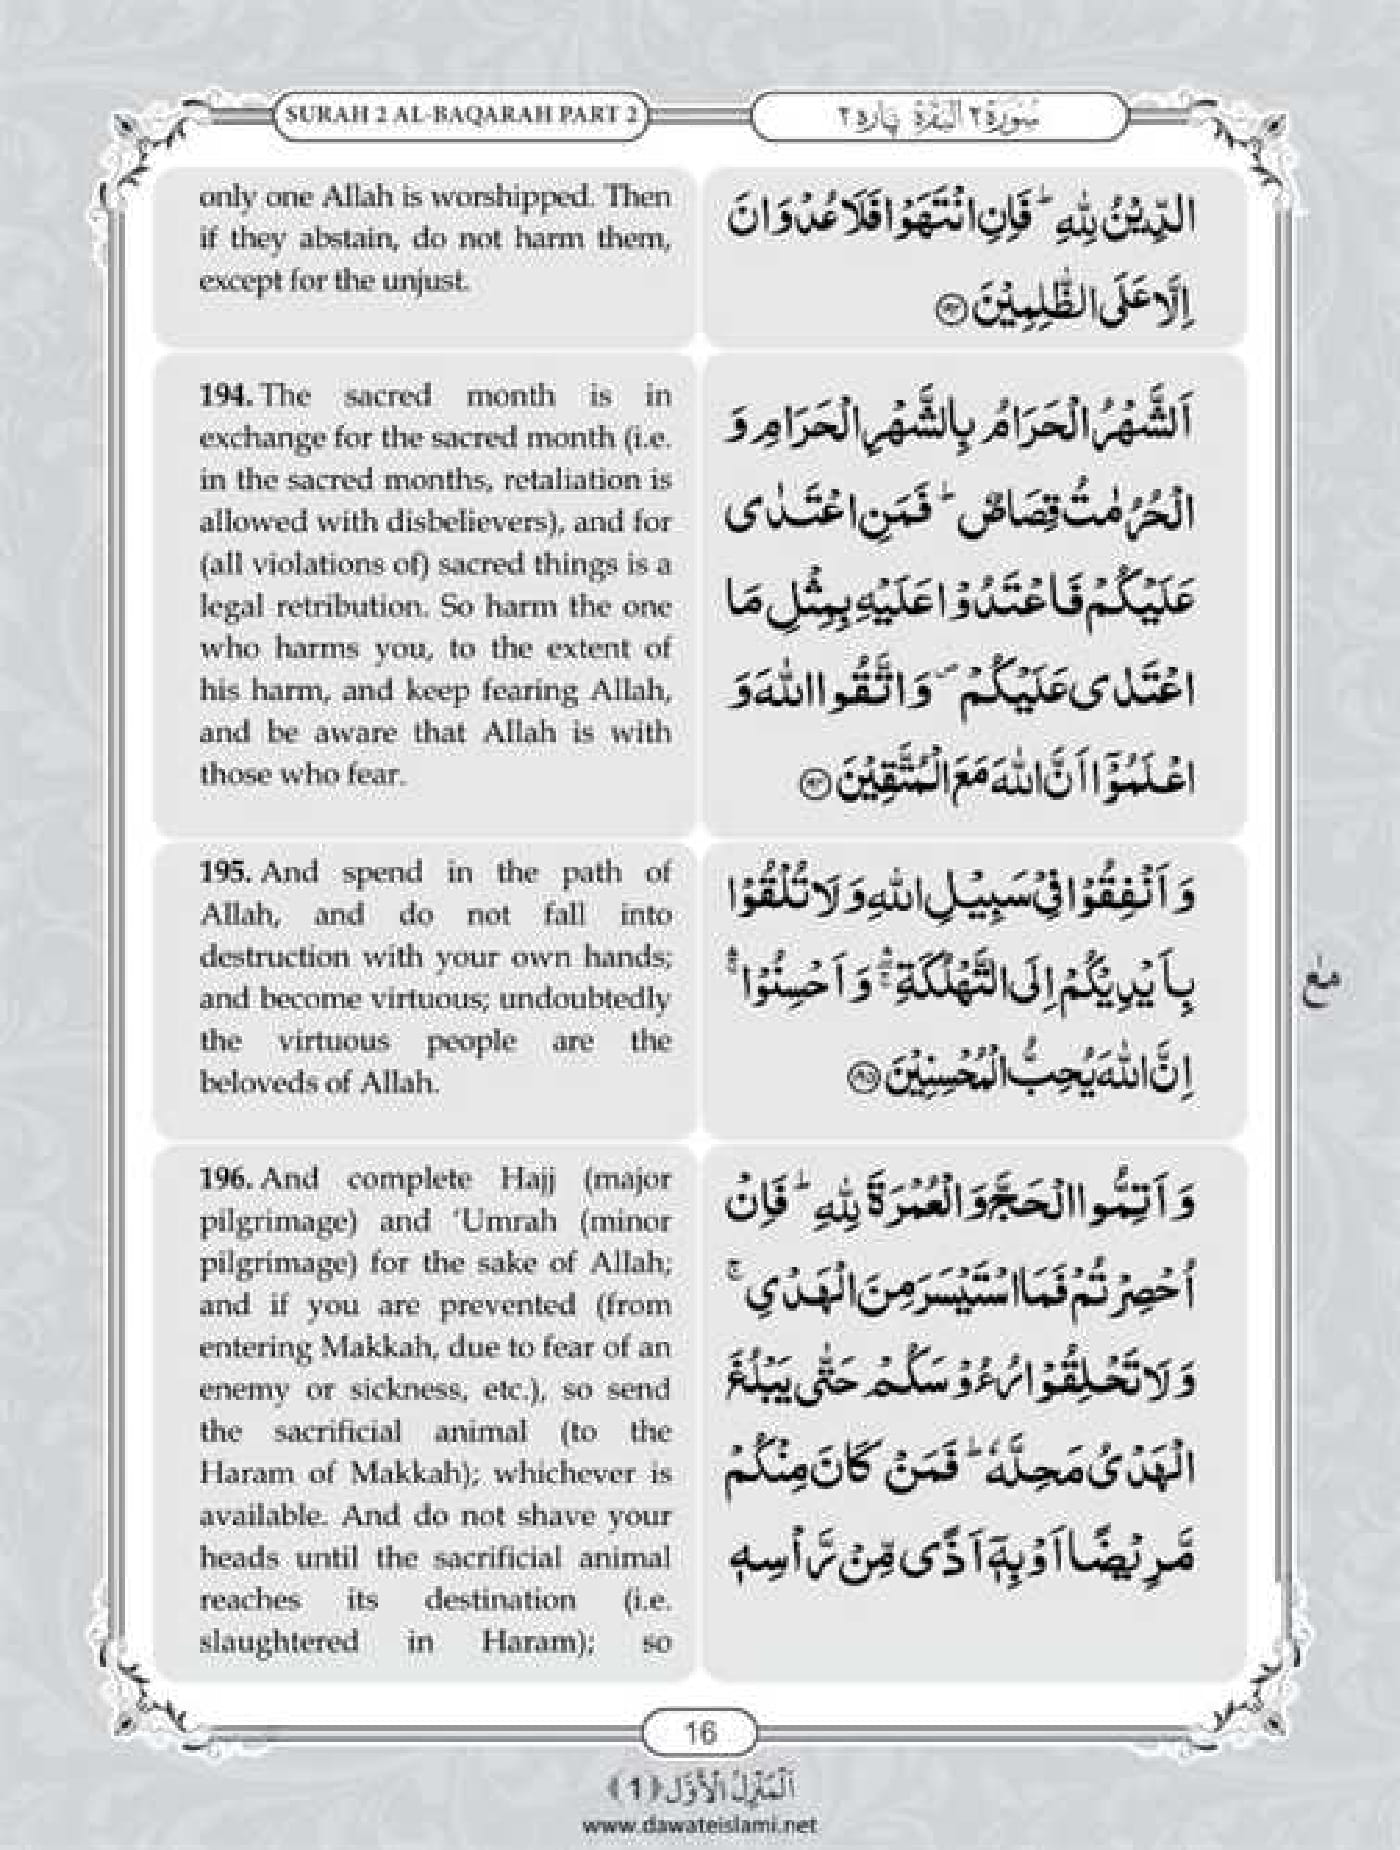 SURAH 2 AL-BAQARAH PART 2
سُوْرَة ٢ اَلْبَقَرَة پاره ٢
only one Allah is worshipped. Then
if they abstain, do not harm them,
except for the unjust.
الدِّيْنُ لِلّٰهِ ؕ فَاِنِ انْتَهَوْا فَلَا عُدْوَانَ
اِلَّا عَلَى الظّٰلِمِيْنَ ﴿۱۹۳﴾
194. The sacred month is in
exchange for the sacred month (i.e.
in the sacred months, retaliation is
allowed with disbelievers), and for
(all violations of) sacred things is a
legal retribution. So harm the one
who harms you, to the extent of
his harm, and keep fearing Allah,
and be aware that Allah is with
those who fear.
اَلشَّهْرُ الْحَرَامُ بِالشَّهْرِ الْحَرَامِ وَ
الْحُرُمٰتُ قِصَاصٌ ؕ فَمَنِ اعْتَدٰى
عَلَيْكُمْ فَاعْتَدُوْا عَلَيْهِ بِمِثْلِ مَا
اعْتَدٰى عَلَيْكُمْ ۪ وَاتَّقُوا اللّٰهَ وَ
اعْلَمُوْۤا اَنَّ اللّٰهَ مَعَ الْمُتَّقِيْنَ ﴿۱۹۴﴾
195. And spend in the path of
Allah, and do not fall into
destruction with your own hands;
and become virtuous; undoubtedly
the virtuous people are the
beloveds of Allah.
وَ اَنْفِقُوْا فِيْ سَبِيْلِ اللّٰهِ وَ لَا تُلْقُوْا
بِاَيْدِيْكُمْ اِلَى التَّهْلُكَةِ ۚۖۛ وَ اَحْسِنُوْا ۚۛ
اِنَّ اللّٰهَ يُحِبُّ الْمُحْسِنِيْنَ ﴿۱۹۵﴾
196. And complete Hajj (major
pilgrimage) and ‘Umrah (minor
pilgrimage) for the sake of Allah;
and if you are prevented (from
entering Makkah, due to fear of an
enemy or sickness, etc.), so send
the sacrificial animal (to the
Haram of Makkah); whichever is
available. And do not shave your
heads until the sacrificial animal
reaches its destination (i.e.
slaughtered in Haram); so
وَ اَتِمُّوا الْحَجَّ وَ الْعُمْرَةَ لِلّٰهِ ؕ فَاِنْ
اُحْصِرْتُمْ فَمَا اسْتَيْسَرَ مِنَ الْهَدْيِ ۚ
وَ لَا تَحْلِقُوْا رُءُوْسَكُمْ حَتّٰى يَبْلُغَ
الْهَدْيُ مَحِلَّهٗ ؕ فَمَنْ كَانَ مِنْكُمْ
مَّرِيْضًا اَوْ بِهٖۤ اَذًى مِّنْ رَّاْسِهٖ
16
اَلْمَنْزِلُ الْاَوَّل ﴿1﴾
www.dawateislami.net